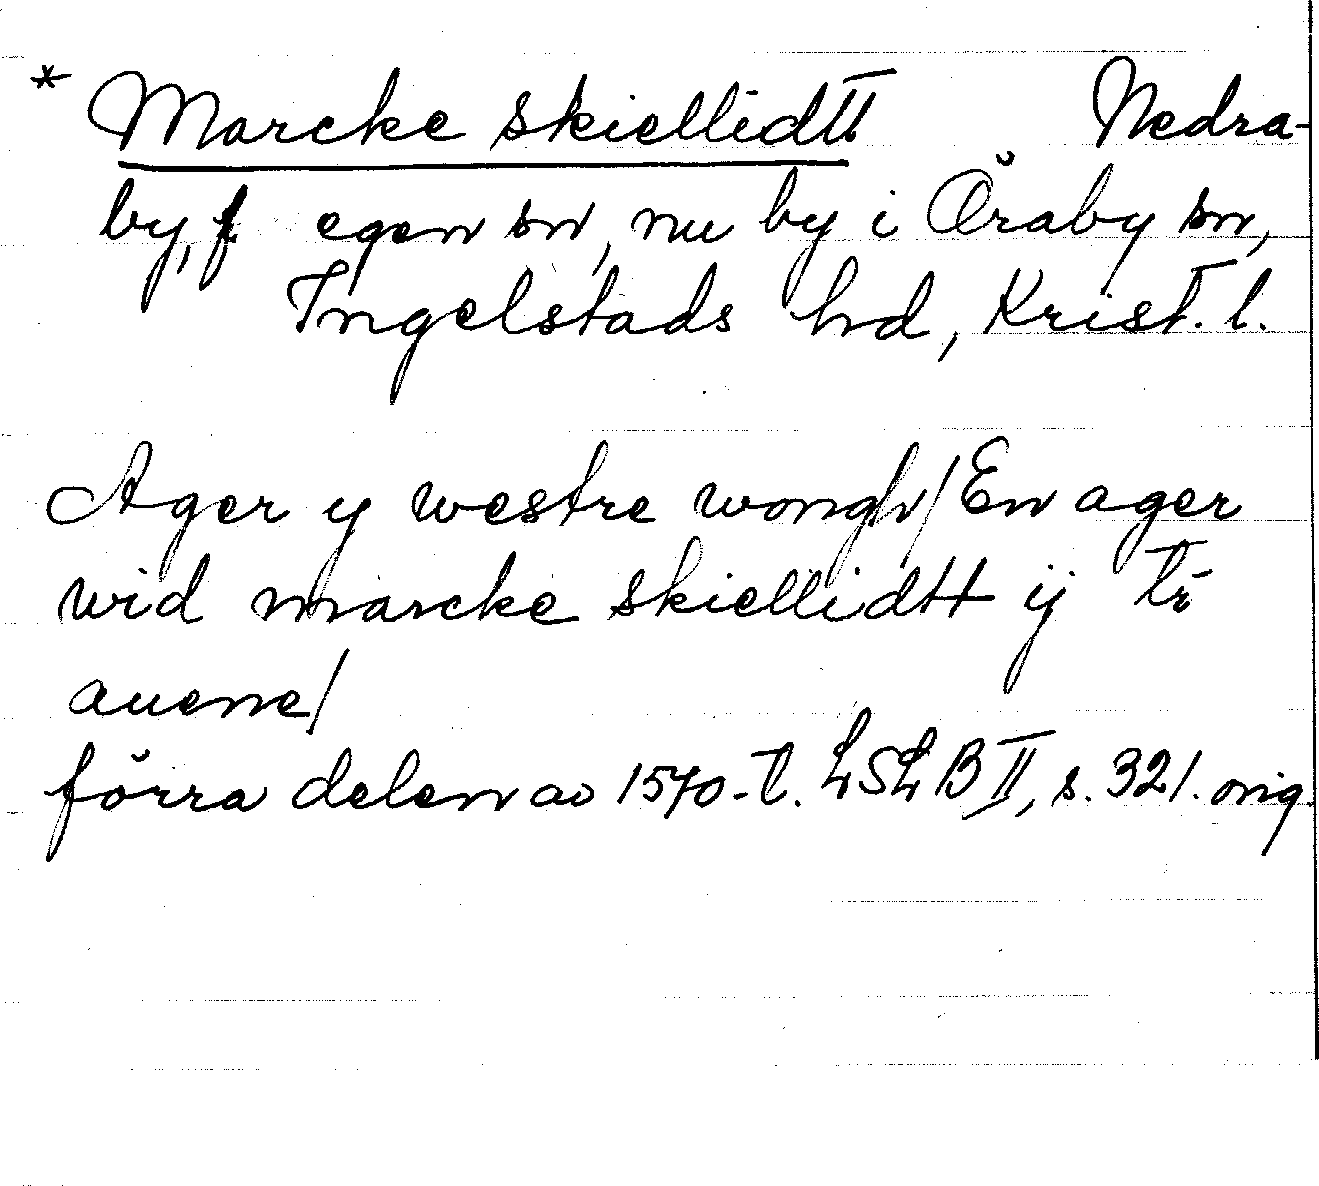 * Marcke skiellidtt Nedra-
by, f egen sn, nu by i Öraby sn,
Ingelstads hd, Krist. l.
Ager y westre wongh/En ager
wid marcke skiellidtt ij tr
auene/
förra delen av 1570-t. LSLB II, s. 321. orig.